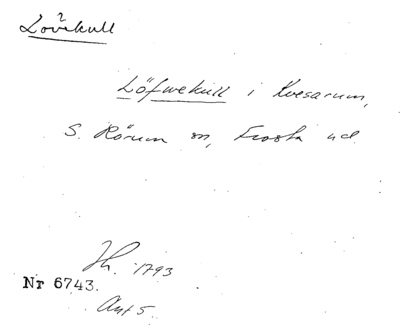 ?
Lovekull
Löfwekull i Kvesarum,
S. Rörum sn, Frosta hd
Jh. 1793
Nr 6743.
Ant 5.